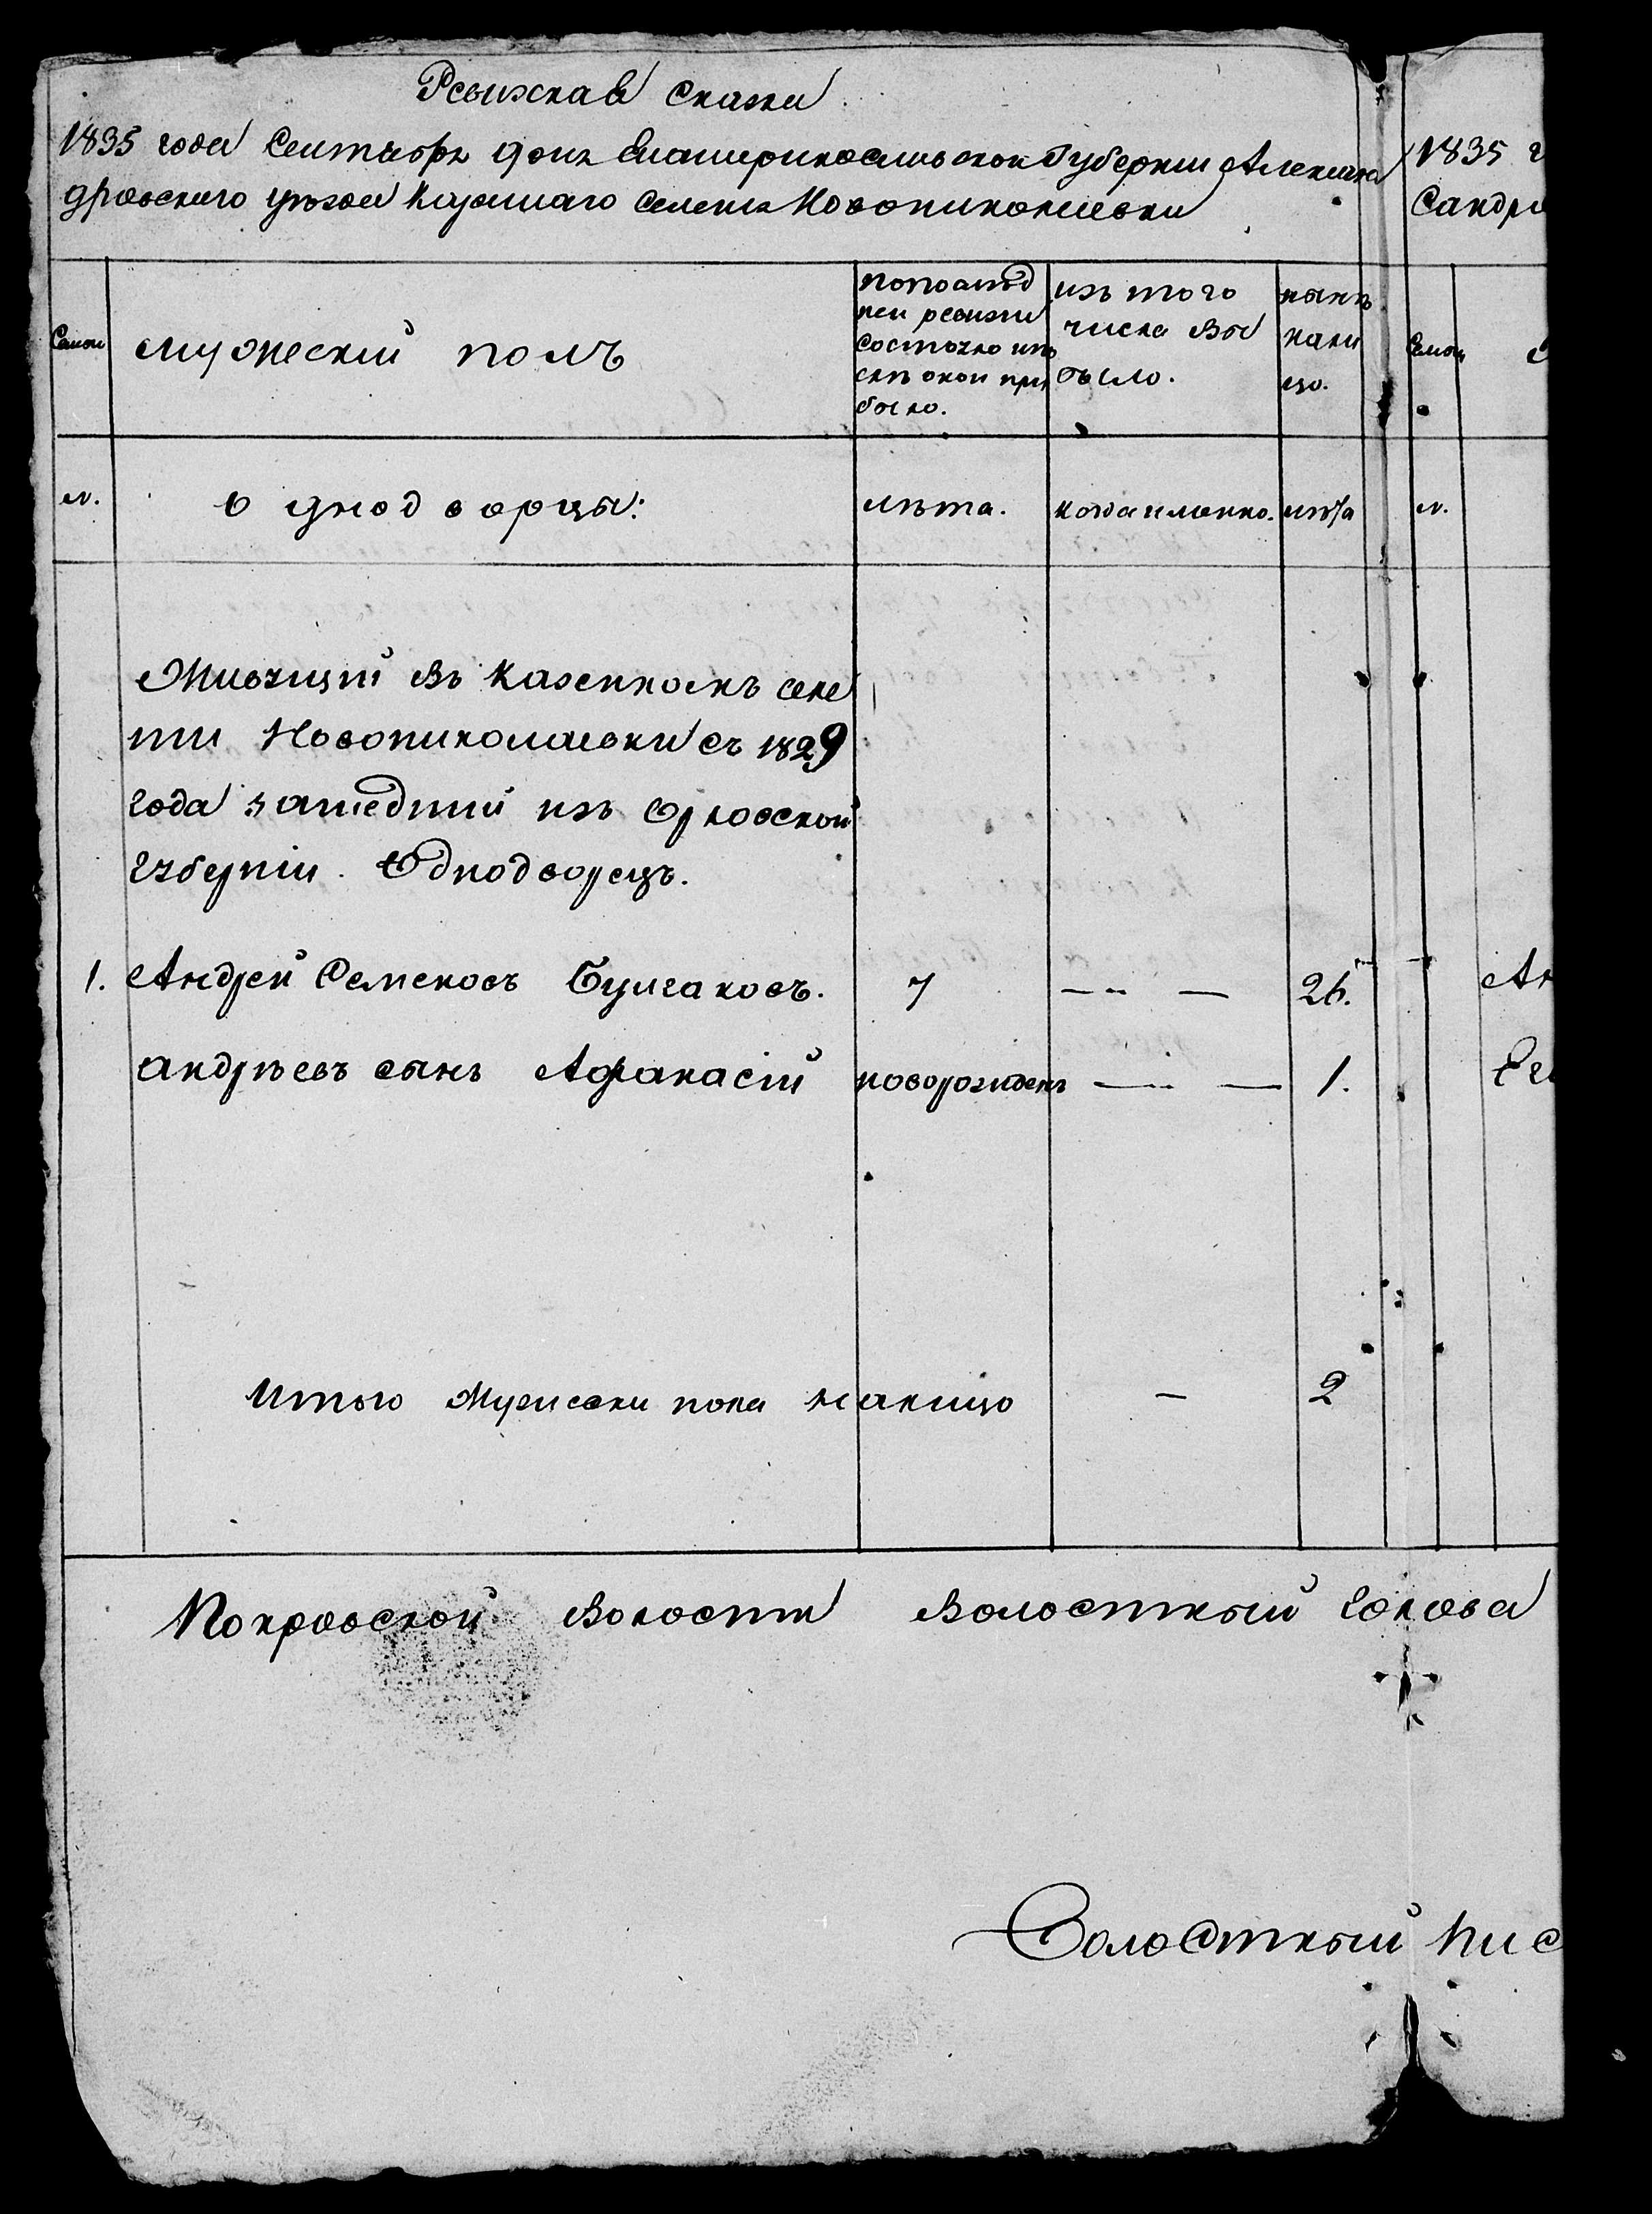 Ревизская Сказка
1835 года Сентября дня Екатеринославской Губернии Алексан
дровского уезда Казеннаго Селения Новониколаевки
1835 г
Сандро
Семьи
мужескій полъ
по послѣд
ней ревизіи
состояло и по
слѣ оной при
было.
изъ того
числа вы
было.
нынѣ
нали
цо.
Семьи
№.
Однодворцы:
лѣта.
когда именно.
лѣта
№.
Живущій въ Казенномъ селе
ніи Новониколаевки съ 1829
года зашедшій изъ Орловской
губерніи. Однодворецъ.
1. Андрей Семеновъ Булгаковъ. 7 — — 26.
Ан
Андрѣевъ сынъ Афанасій новорожденъ — — 1.
Ег
Итого Мужеска пола налицо — 2
Покровской Волости Волостный голова
Волостный Пис